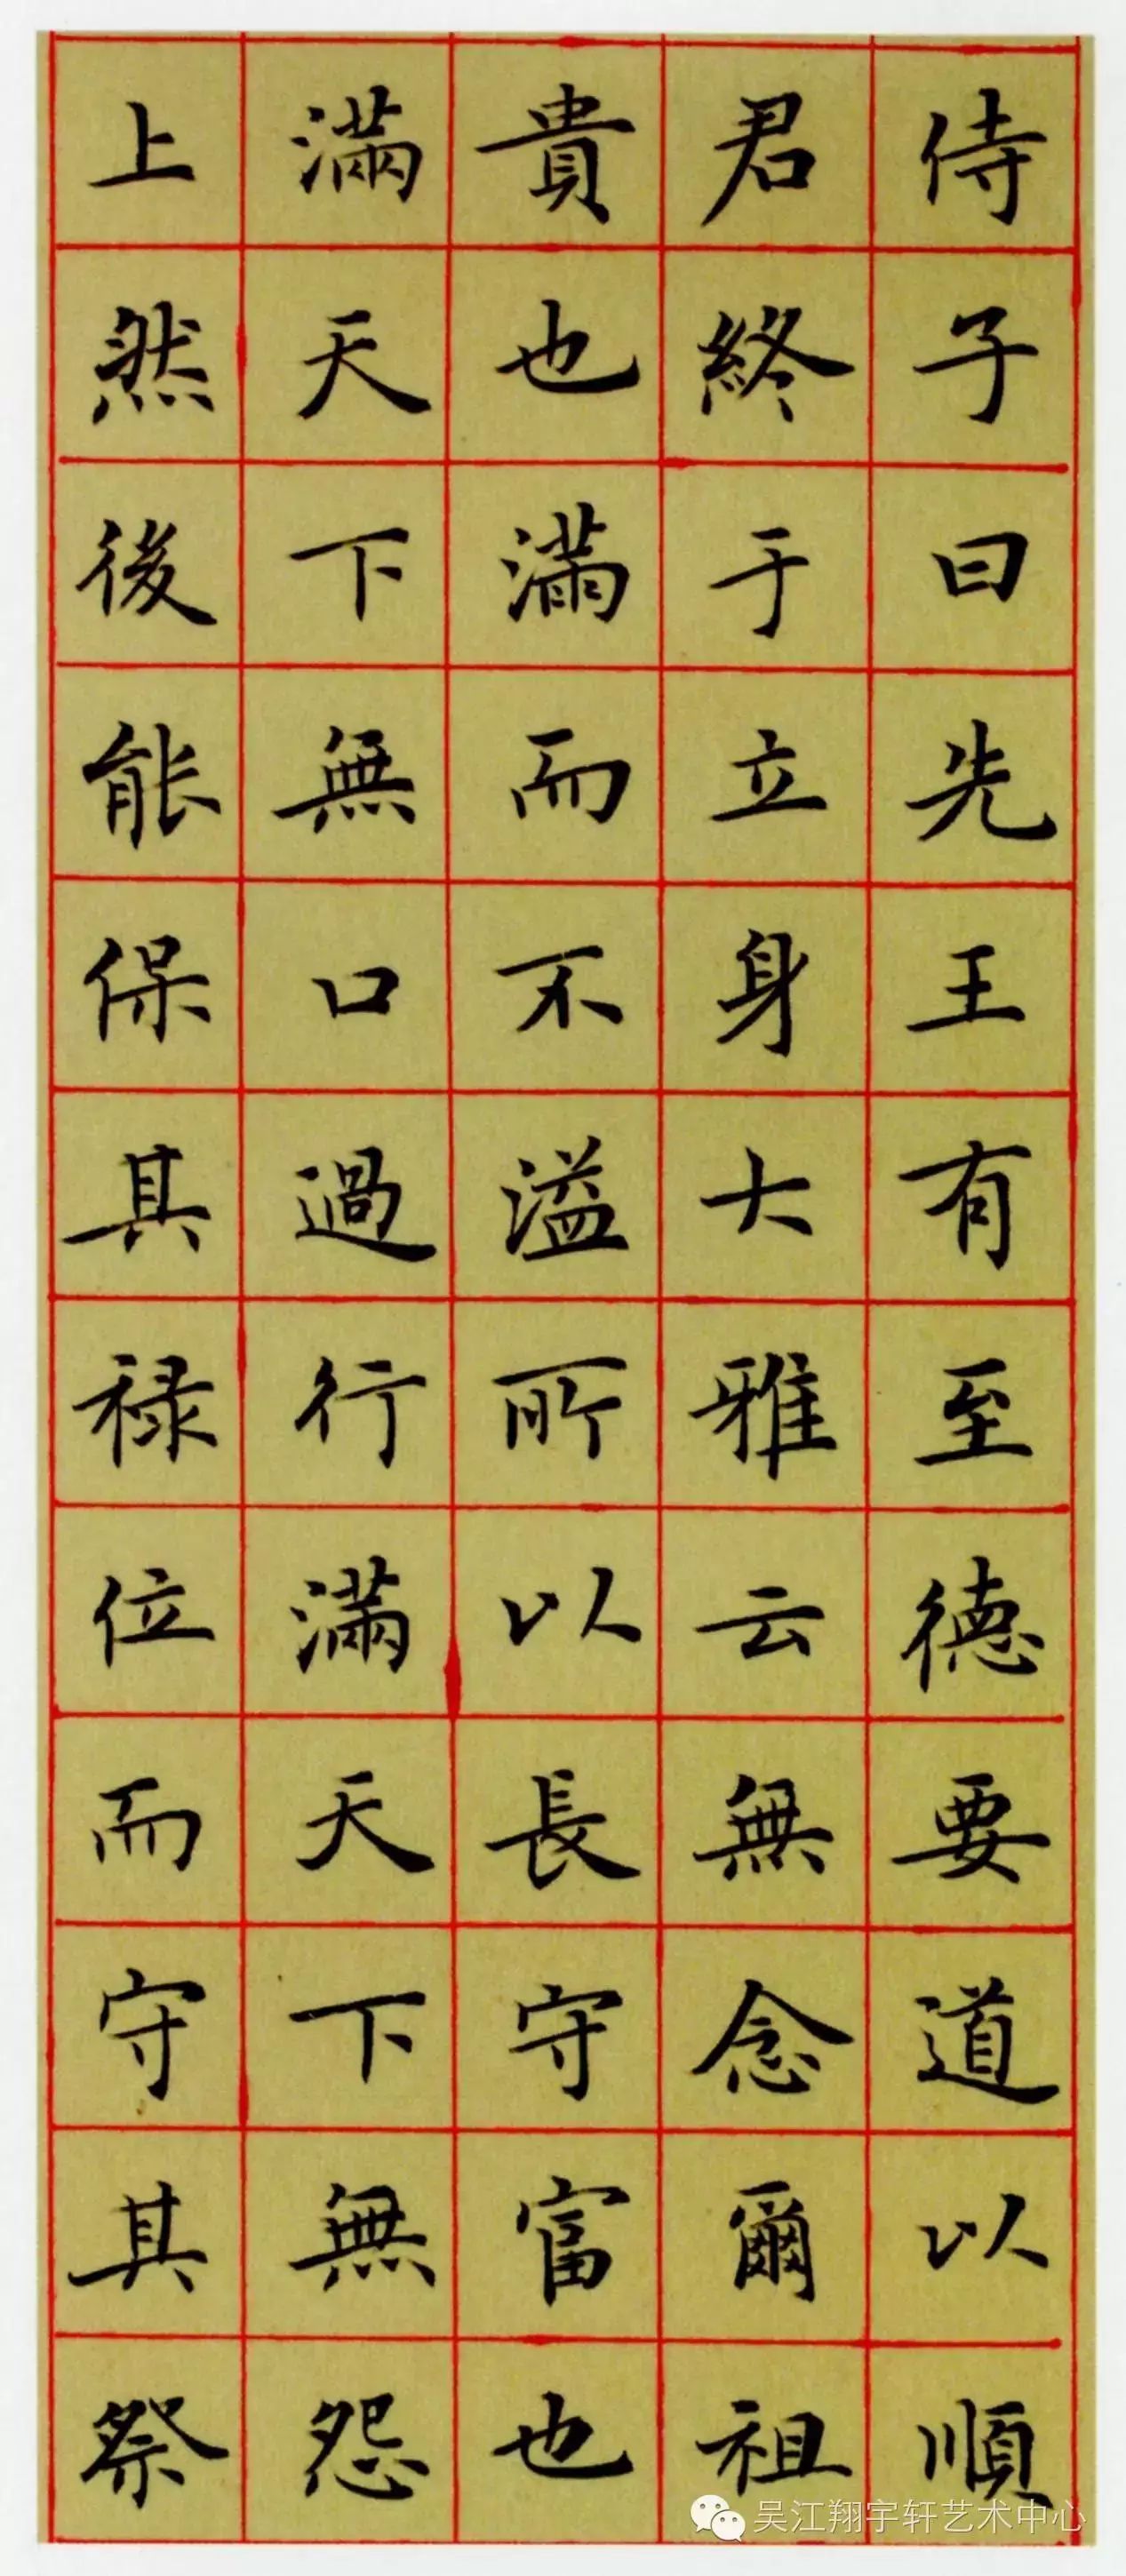 侍子曰先王有至德要道以順
君終于立身大雅云無念爾祖
貴也滿而不溢所以長守富也
滿天下無口過行滿天下無怨
上然後能保其禄位而守其祭
吴江翔宇轩艺术中心